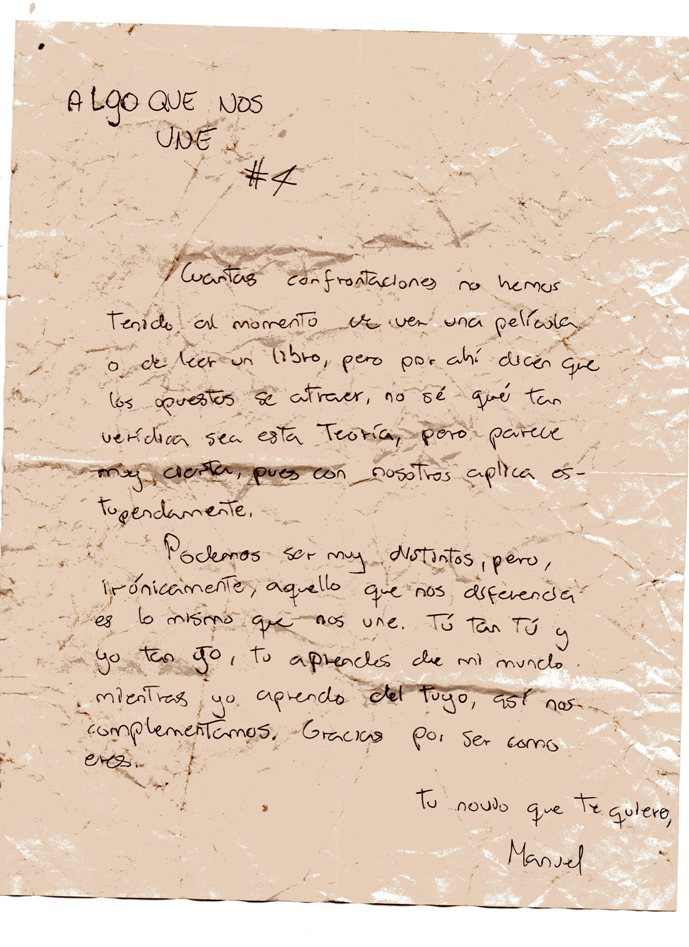 ALGO QUE NOS
UNE
#4
Cuantas confrontaciones no hemos
tenido al momento de ver una película
o de leer un libro, pero por ahí dicen que
los opuestos se atraer, no sé qué tan
verídica sea esta teoría, pero parece
muy cierta, pues con nosotros aplica es-
tupendamente.
Podemos ser muy distintos, pero,
irónicamente, aquello que nos diferencia
es lo mismo que nos une. Tú tan Tú y
yo tan yo, tu aprendes de mi mundo
mientras yo aprendo del tuyo, así nos
complementamos. Gracias por ser como
eres.
Tu novio que te quiero,
Manuel